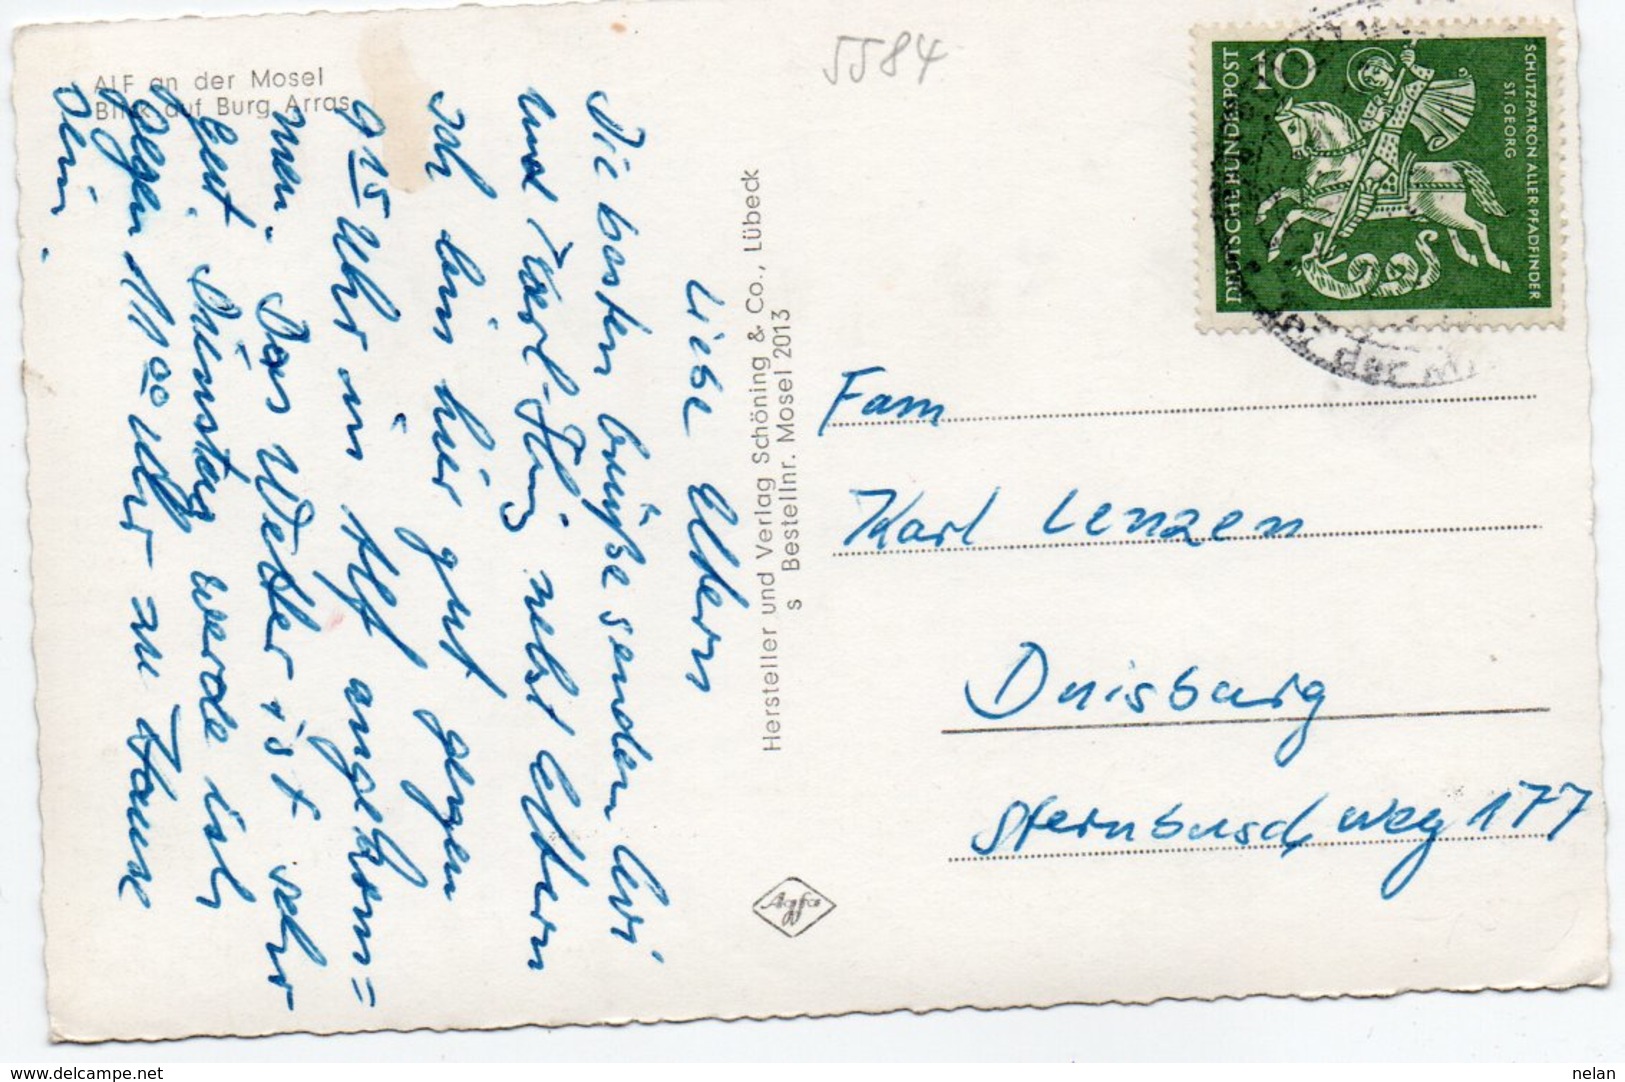 ALF an der Mosel
Blick auf Burg Arras
5584
Liebe Eltern
Die besten Grüße senden
und Karl-Heinz nebst Eltern
Ich bin hier gut gegen
9 15 Uhr in Alf angekom=
men. Das Wetter ist sehr
gut. Dienstag werde ich
gegen 11 00 Uhr zu Hause
sein.
Hersteller und Verlag Schöning & Co., Lübeck
s Bestellnr. Mosel 2013
Agfa
10
DEUTSCHE BUNDESPOST
SCHUTZPATRON ALLER PFADFINDER
ST. GEORG
Fam
Karl Lenzen
Duisburg
Sternbuschweg 177
www.delcampe.net
nelan